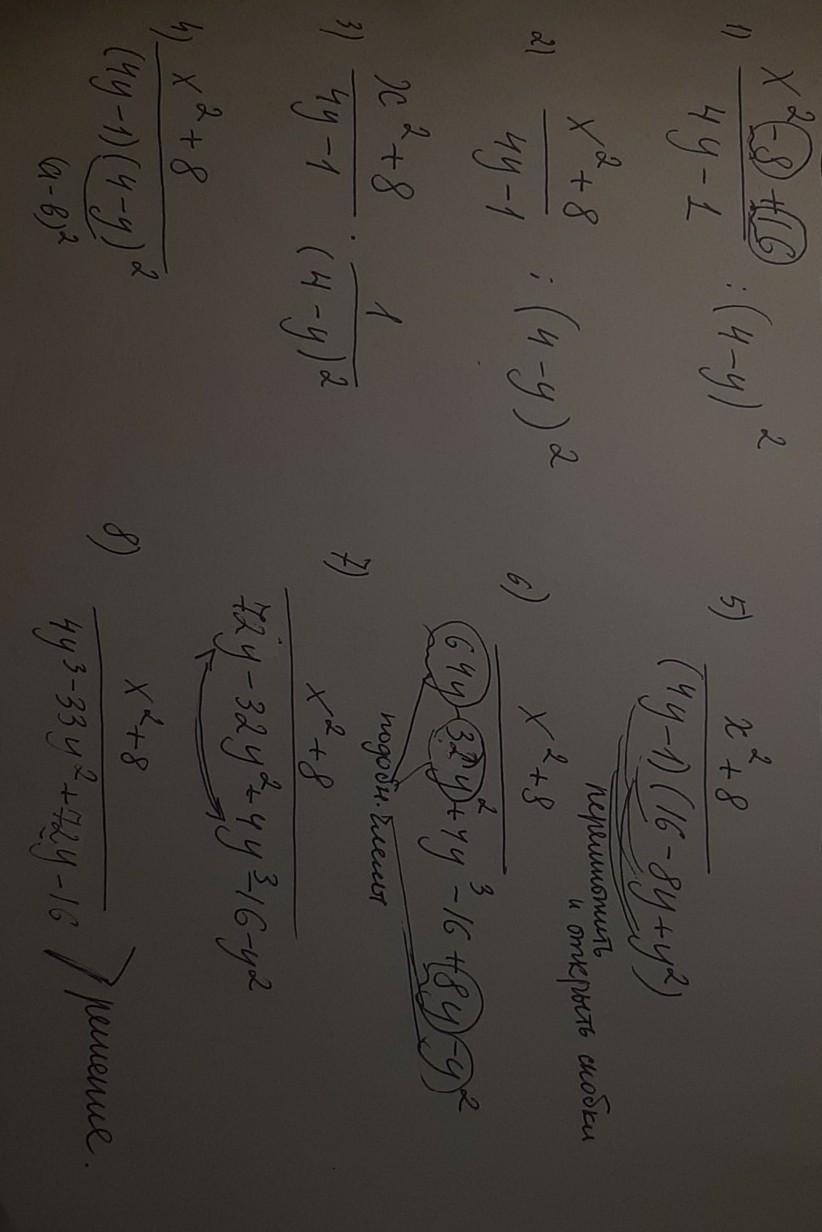 1) x² - 8 + 16 / 4y - 1 : (4 - y)²
2) x² + 8 / 4y - 1 : (4 - y)²
3) x² + 8 / 4y - 1 · 1 / (4 - y)²
4) x² + 8 / (4y - 1)(4 - y)²
(a - b)²
5) x² + 8 / (4y - 1)(16 - 8y + y²)
перемножить
и открыть скобки
6) x² + 8 / 64y - 32y² + 4y³ - 16 + 8y - y²
подобн. члены
7) x² + 8 / 72y - 32y² + 4y³ - 16 - y²
8) x² + 8 / 4y³ - 33y² + 72y - 16 } решение.